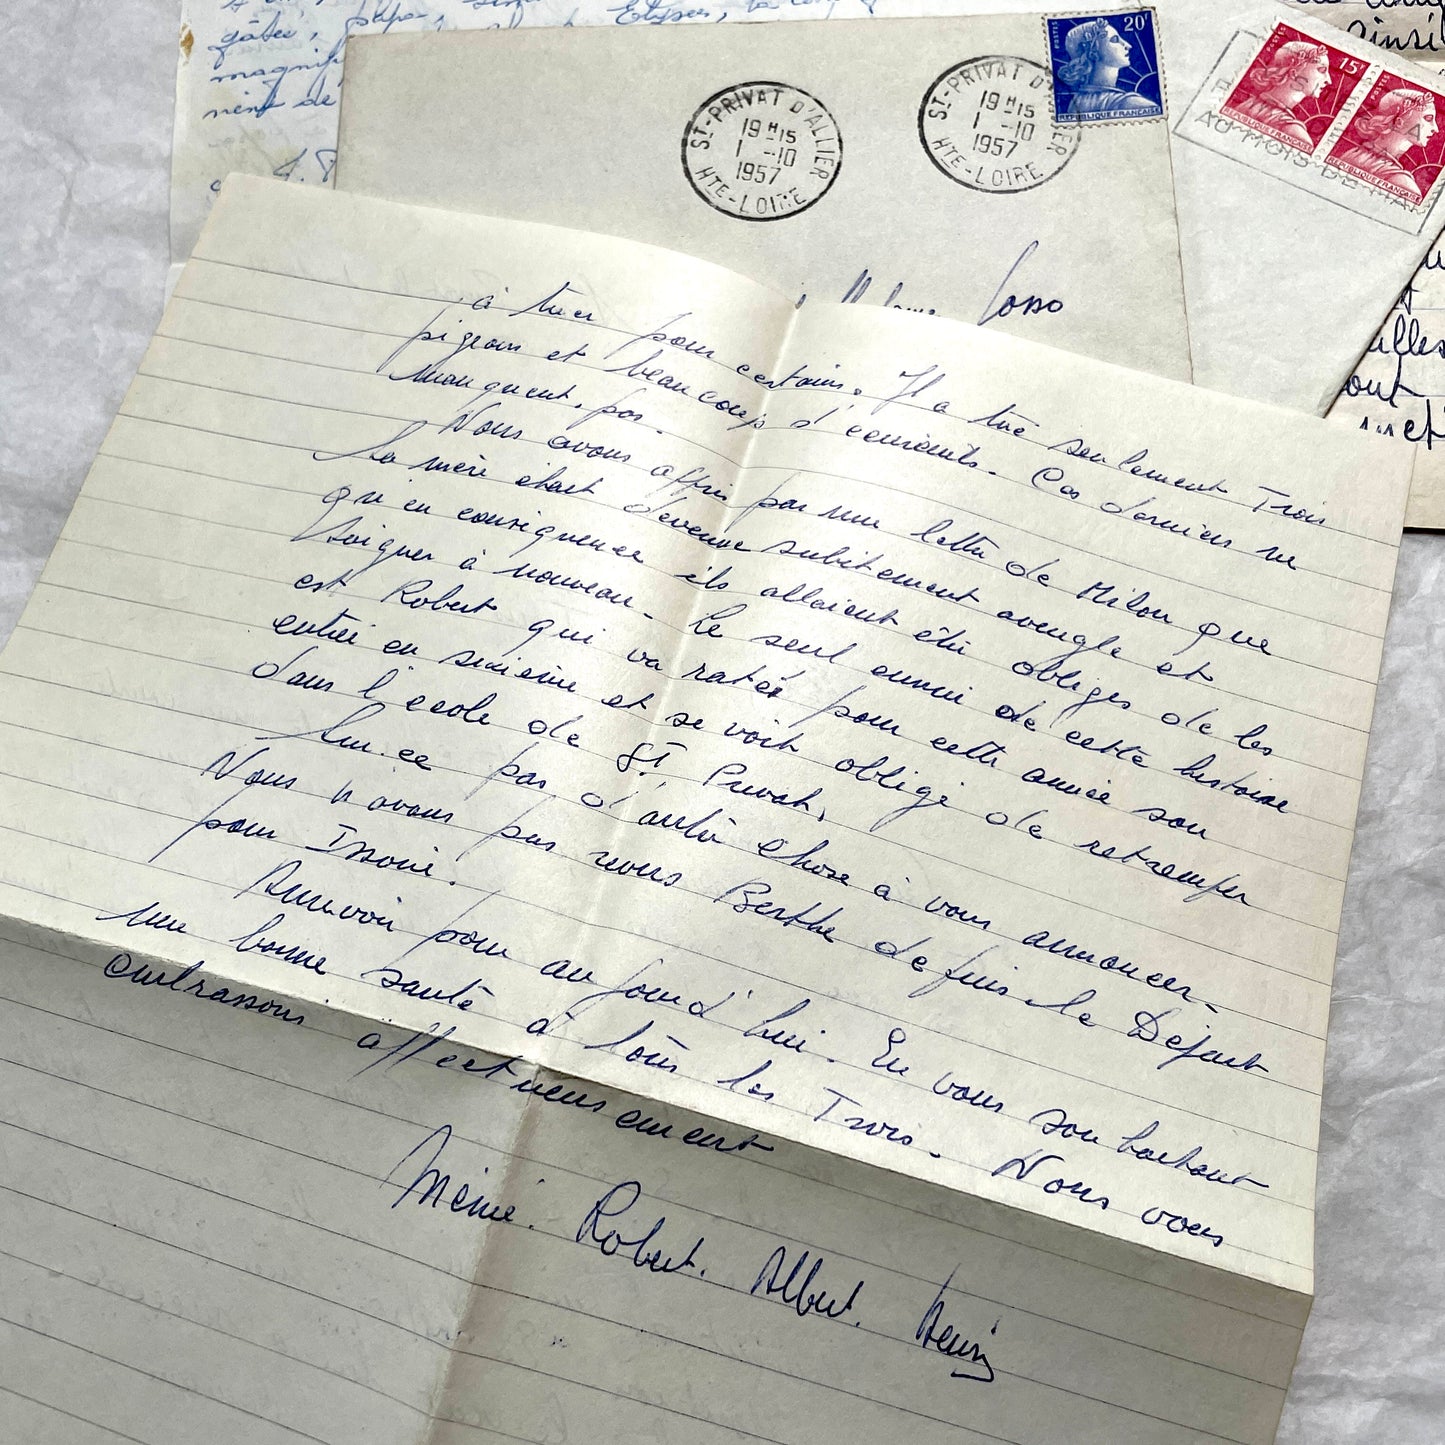 gâtée,
magnif
ST-PRIVAT D'ALLIER
19 H 15
1 -10
1957
HTE-LOIRE
ST-PRIVAT D'
19 H 15
1 -10
1957
HTE-LOIRE
POSTES
20F
REPUBLIQUE FRANCAISE
POSTES
15F
REPUBLIQUE FRANCAISE
POSTES
REPUBLIQUE FRANCAISE
AU MOIS DE MAI
ainsi
illes
out
met
à tuer pour certains. Il a tué seulement Trois
pigeons et beaucoup d'écureuils. Ces derniers ne
manquent pas.
Nous avons appris par une lettre de Milou que
la mère était devenue subitement aveugle et
qu'en conséquence ils allaient être obligés de les
soigner à nouveau. Le seul ennui de cette histoire
est Robert qui va rater pour cette année son
entrée en sixième et se voit obligé de retremper
dans l'école de St Privat.
Sur ce pas d'autre chose à vous annoncer.
Nous n'avons pas revu Berthe depuis le Départ
pour Issoire.
Aurevoir pour aujourd'hui. En vous souhaitant
une bonne santé à tous les Trois. Nous vous
embrassons affectueusement
Mémé. Robert. Albert. Henri